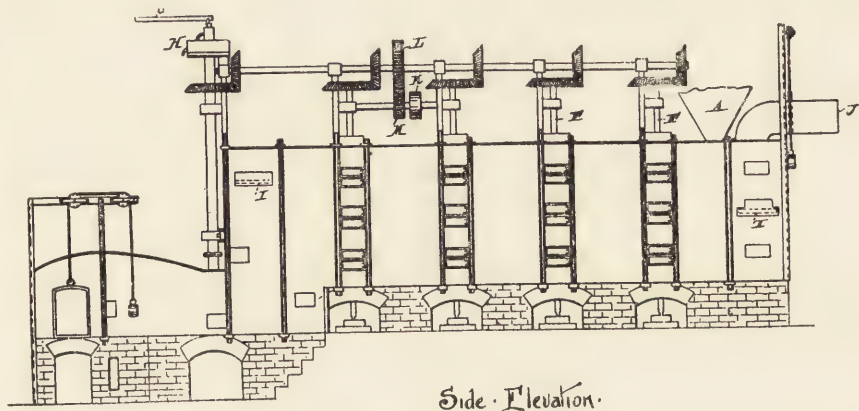 H
L
K
M
F
F
A
J
I
I
Side · Elevation ·